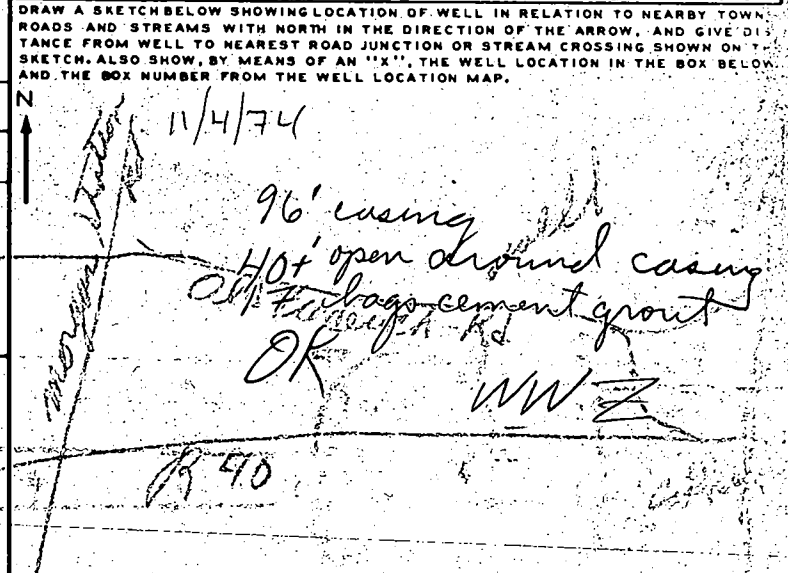 DRAW A SKETCH BELOW SHOWING LOCATION OF WELL IN RELATION TO NEARBY TOWN
ROADS AND STREAMS WITH NORTH IN THE DIRECTION OF THE ARROW, AND GIVE DIS
TANCE FROM WELL TO NEAREST ROAD JUNCTION OR STREAM CROSSING SHOWN ON TH
SKETCH. ALSO SHOW, BY MEANS OF AN "X", THE WELL LOCATION IN THE BOX BELOW
AND THE BOX NUMBER FROM THE WELL LOCATION MAP.
N
11/4/74
Morgan Station Rd
96' casing
40+' open around casing
7 bags cement grout
Old Rd
OK
WWZ
R 40